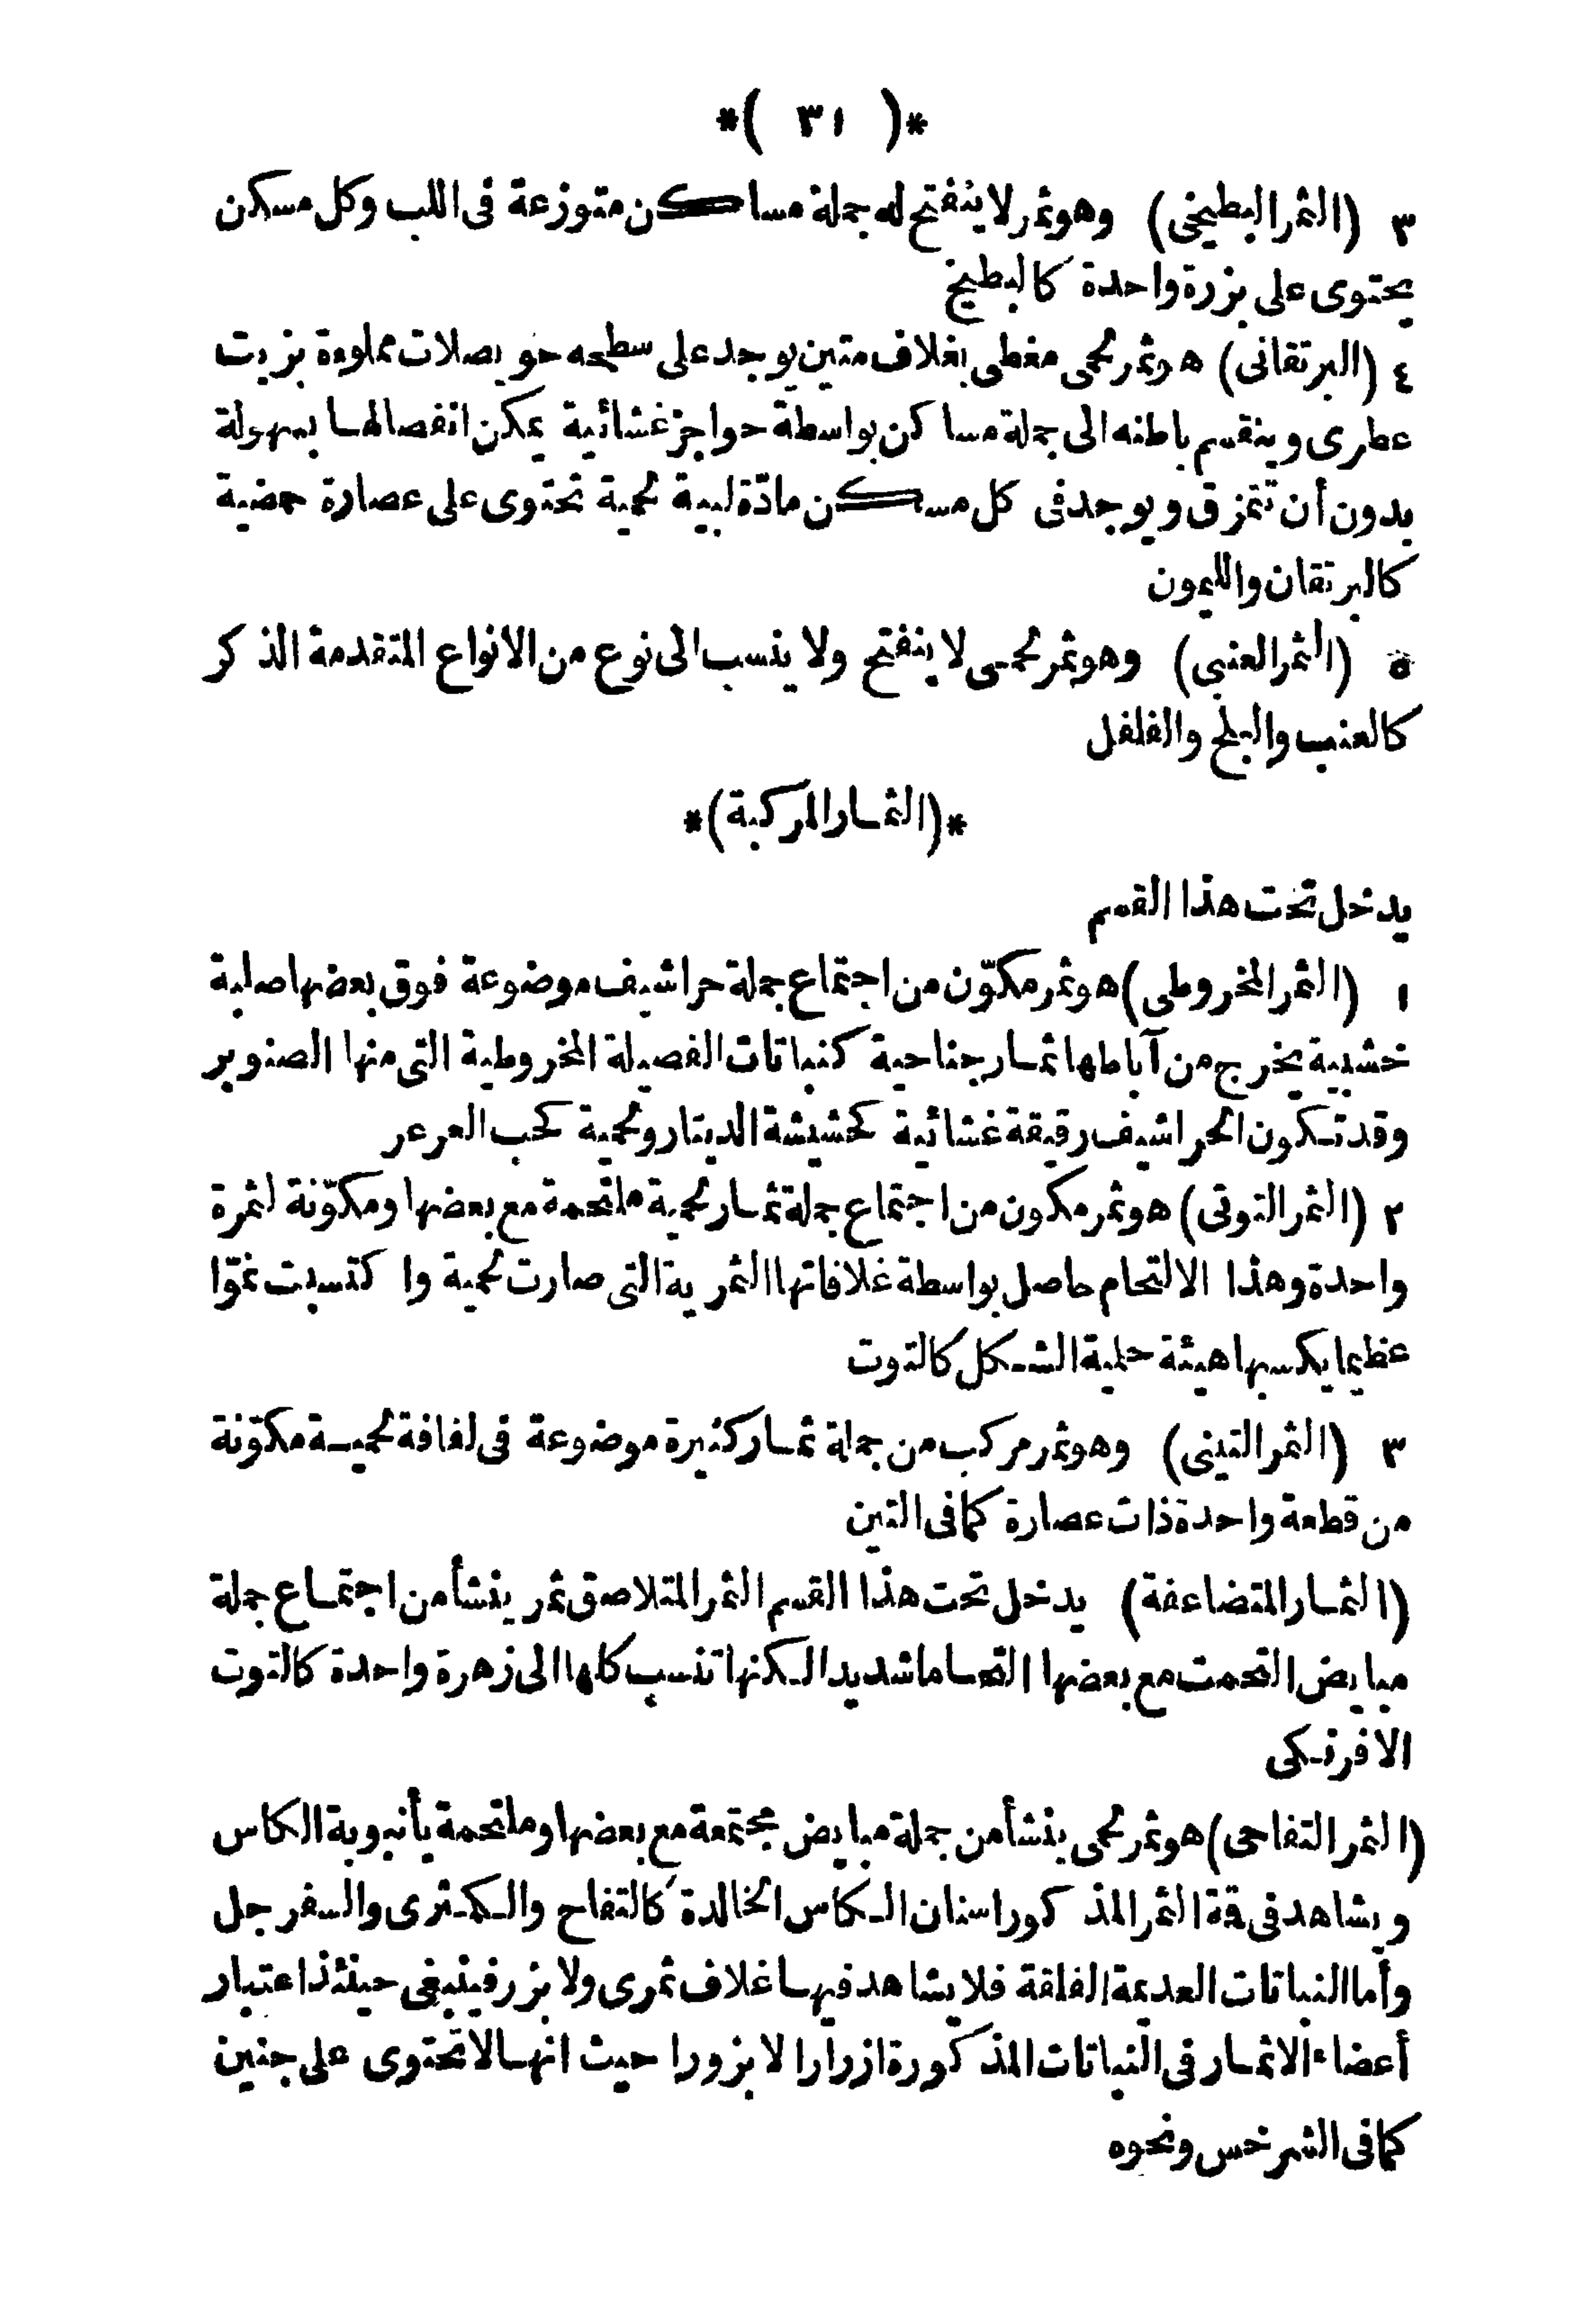 *( ٣١ )*
٣ (الثمر البطيخى) وهو ثمر لا ينفتح له جملة مساكن متوزعة فى اللب وكل مسكن
يحتوى على بزرة واحدة كالبطيخ
٤ (البرتقانى) هو ثمر لحمى مغطى بغلاف متين يوجد على سطحه حويصلات مملوءة بزيت
عطرى وينقسم باطنه الى جملة مساكن بواسطة حواجز غشائية يمكن انفصالها بسهولة
بدون أن تتمزق ويوجد فى كل مسكن مادّة لبية لحمية تحتوى على عصارة حمضية
كالبرتقان والليمون
٥ (الثمر العنبى) وهو ثمر لحمى لا ينفتح ولا ينسب الى نوع من الانواع المتقدمة الذكر
كالعنب والبلح والفلفل
*(الثمار المركبة)*
يدخل تحت هذا القسم
١ (الثمر المخروطى) هو ثمر مكوّن من اجتماع جملة حراشيف موضوعة فوق بعضها صلبة
خشبية يخرج من آباطها ثمار جناحية كنباتات الفصيلة المخروطية التى منها الصنوبر
وقد تكون الحراشيف رقيقة غشائية كحشيشة الدينار ولحمية كحب العرعر
٢ (الثمر التوتى) هو ثمر مكون من اجتماع جملة ثمار لحمية ملتحمة مع بعضها ومكوّنة لثمرة
واحدة وهذا الالتحام حاصل بواسطة غلافاتها الثمرية التى صارت لحمية واكتسبت نموّا
عظيما يكسبها هيئة حلمية الشكل كالتوت
٣ (الثمر التينى) وهو ثمر مركب من جملة ثمار كثيرة موضوعة فى لفافة لحمية مكوّنة
من قطعة واحدة ذات عصارة كما فى التين
(الثمار المتضاعفة) يدخل تحت هذا القسم الثمر المتلاصق ثمر ينشأ من اجتماع جملة
مبايض التحمت مع بعضها التحاما شديدا لكنها تنسب كلها الى زهرة واحدة كالتوت
الافرنكى
(الثمر التفاحى) هو ثمر لحمى ينشأ من جملة مبايض مجتمعة مع بعضها وملتحمة بأنبوبة الكاس
ويشاهد فى قة الثمر المذكور اسنان الكاس الخالدة كالتفاح والكمثرى والسفرجل
وأما النباتات العديمة الفلقة فلا يشاهد فيها غلاف ثمرى ولا بزر فينبغى حينئذ اعتبار
أعضاء الاثمار فى النباتات المذكورة ازرارا لا بزورا حيث انها لا تحتوى على جنين
كما فى السرخس ونحوه